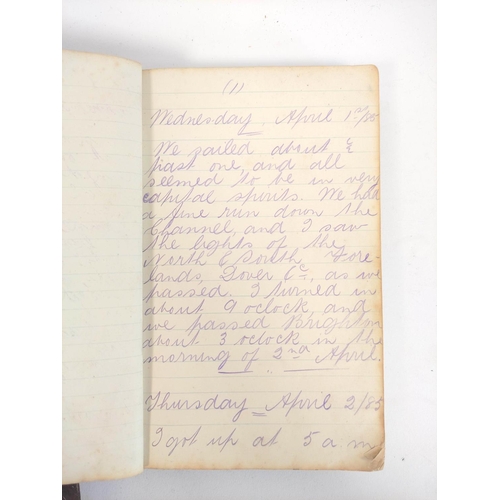 (1)
Wednesday April 1st/85
We sailed about ½
past one, and all
seemed to be in very
capital spirits. We had
a fine run down the
Channel, and I saw
the lights of the
North & South Fore-
lands, Dover &c, as we
passed. I turned in
about 9 oclock, and
we passed Brighton
about 3 oclock in the
morning of 2nd April.
Thursday April 2/85
I got up at 5 a m